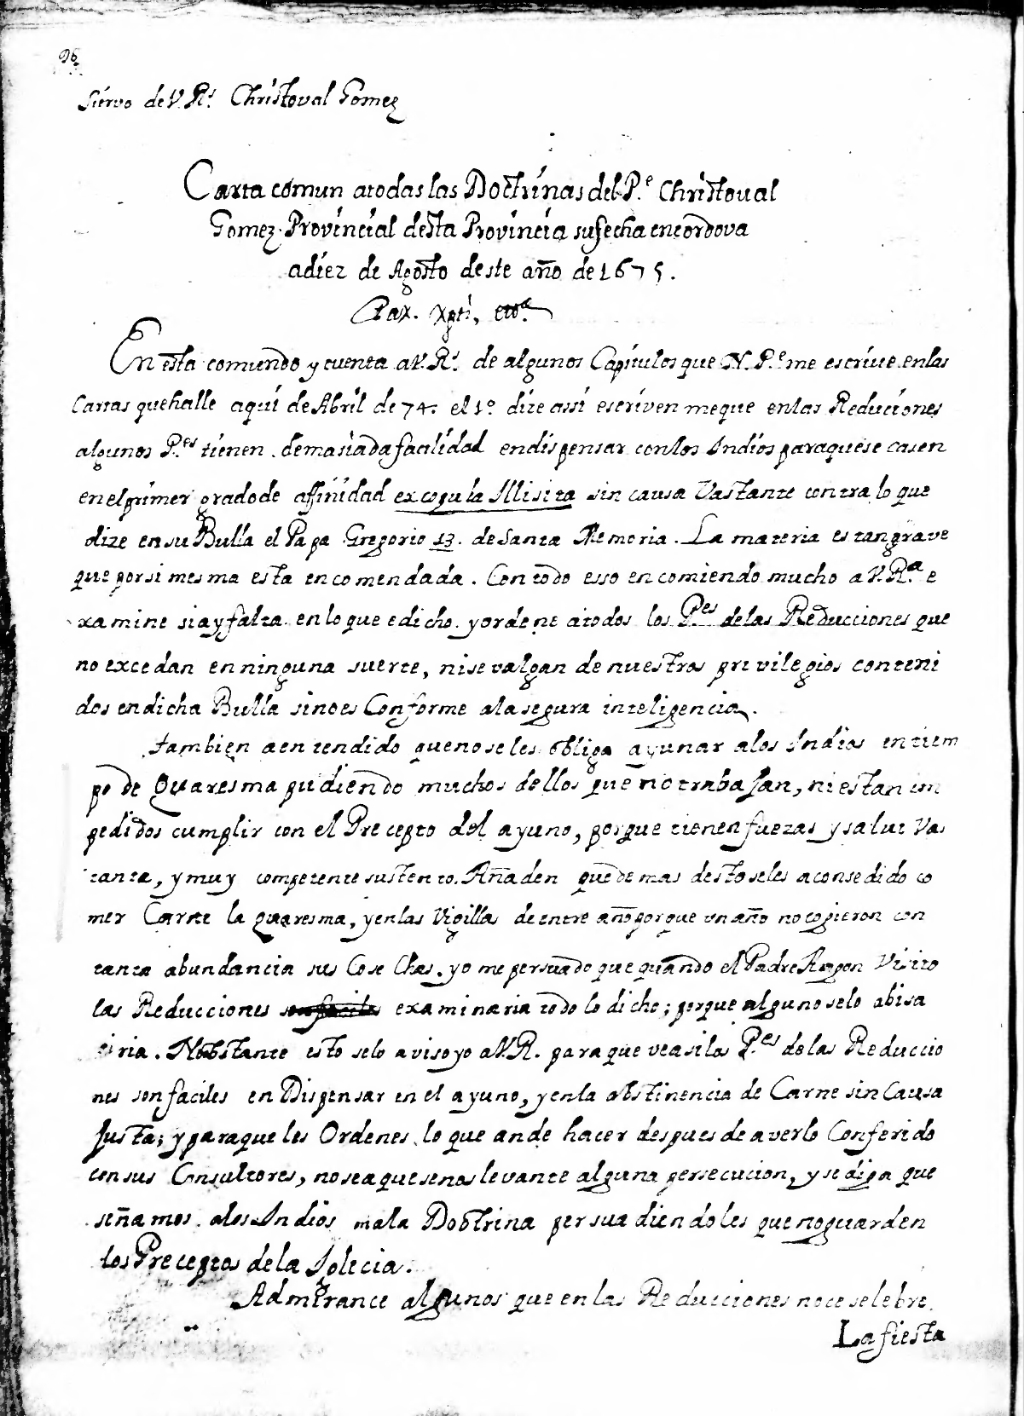 96
Siervo de V. Rª. Christoval Gomez
Carta comun atodas las Doctrinas del P.e Christoval
Gomez Provincial desta Provincia su fecha encordova
adiez de Agosto deste año de 1675.
Pax. Xpti, etcª
En esta comunico y cuenta aV.Rª. de algunos Capitulos que N. P.e me escrive en las
Cartas que halle aqui de Abril de 74. el 1º. dize assi escriven me que en las Reduciones
algunos P.es tienen demasiada facilidad en dispensar con los Indios paraque se casen
en el primer grado de affinidad ex copula Illisita sin causa Vastante contra lo que
dize en su Bulla el Papa Gregorio 13. de Santa Memoria. La materia es tan grave
que por si mesma esta encomendada. Con todo esso encomiendo mucho a V.Rª e
xamine si ay falta en lo que e dicho. y ordene atodos los P.es de las Reducciones que
no excedan en ninguna suerte, ni se valgan de nuestros privilegios conteni
dos en dicha Bulla sino es Conforme a la segura inteligencia.
tambien a entendido que no se les obliga ayunar alos Indios en tiem
po de Quaresma pudiendo muchos dellos que no trabajan, ni estan im
pedidos cumplir con el Precepto del ayuno, porque tienen fuezas y salut Vas
tanta, y muy competente sustento. Añaden que de mas desto seles a consedido co
mer Carne la quaresma, y en las Vigilias de entre año porque un año no cogieron con
tanta abundancia sus Cosechas. yo me persuado que quando el Padre Rapon Visito
las Reducciones examinaria todo lo dicho; porque alguno selo abisa
iria. Nobstante esto selo aviso yo aV.R. para que vea si los P.es de las Reduccio
nes son faciles en Dispensar en el ayuno, y en la abstinencia de Carne sin Causa
Justa; y para que les Ordenes lo que an de hacer despues de averlo Conferido
con sus Consultores, no sea que se nos levante alguna persecucion, y se diga que
señamos alos Indios mala Doctrina persuadiendoles que no guarden
los Preceptos de la Iglecia.
Admiranse algunos que en las Reducciones no ce selebre
La fiesta